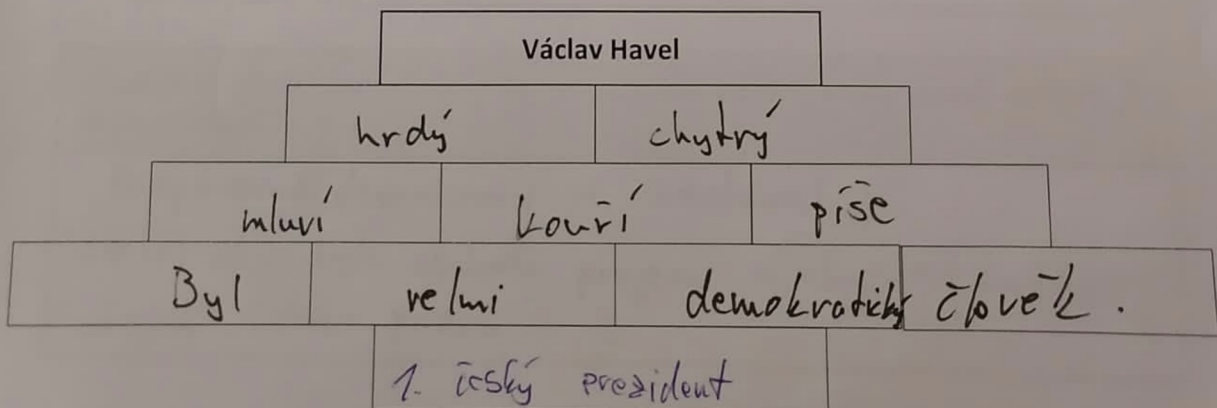 Václav Havel
hrdý chytrý
mluví kouří píše
Byl velmi demokratický člověk.
1. český prezident